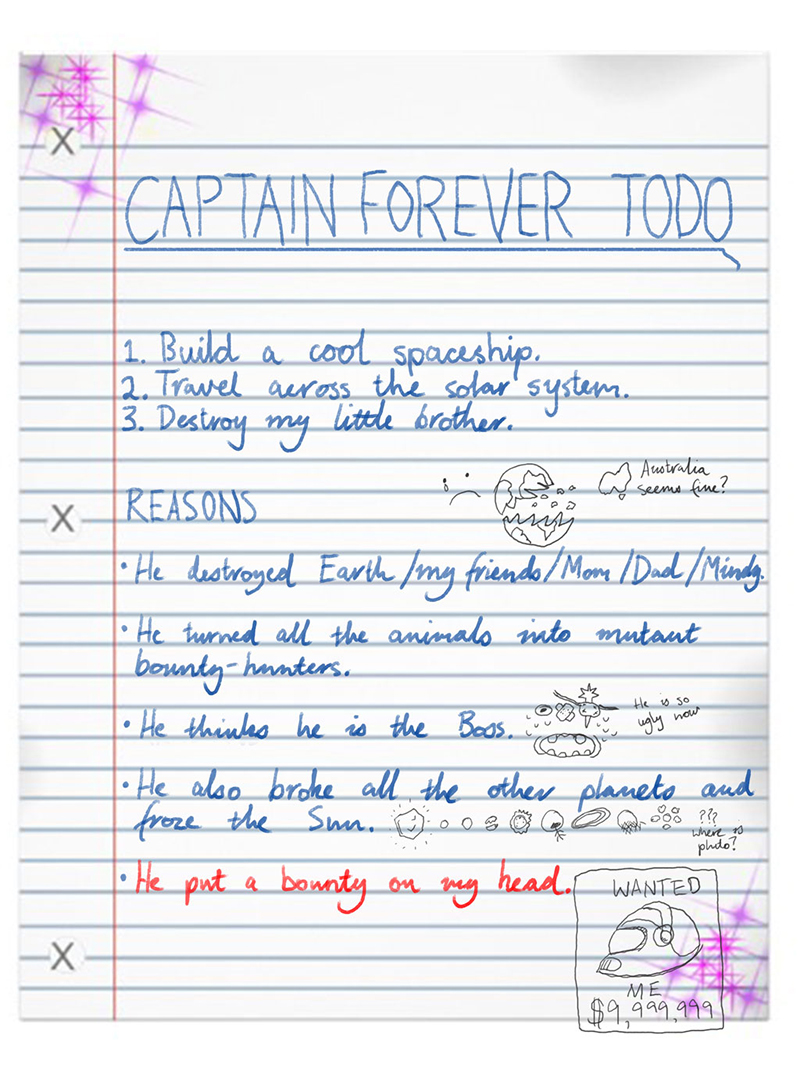 CAPTAIN FOREVER TODO
1. Build a cool spaceship.
2. Travel across the solar system.
3. Destroy my little brother.
Australia
seems fine?
REASONS
• He destroyed Earth/my friends/Mom/Dad/Mindy.
• He turned all the animals into mutant
bounty-hunters.
• He thinks he is the Boss.
He is so
ugly now
• He also broke all the other planets and
froze the Sun.
???
where is
pluto?
• He put a bounty on my head.
WANTED
ME
$9,999,999
X
X
X